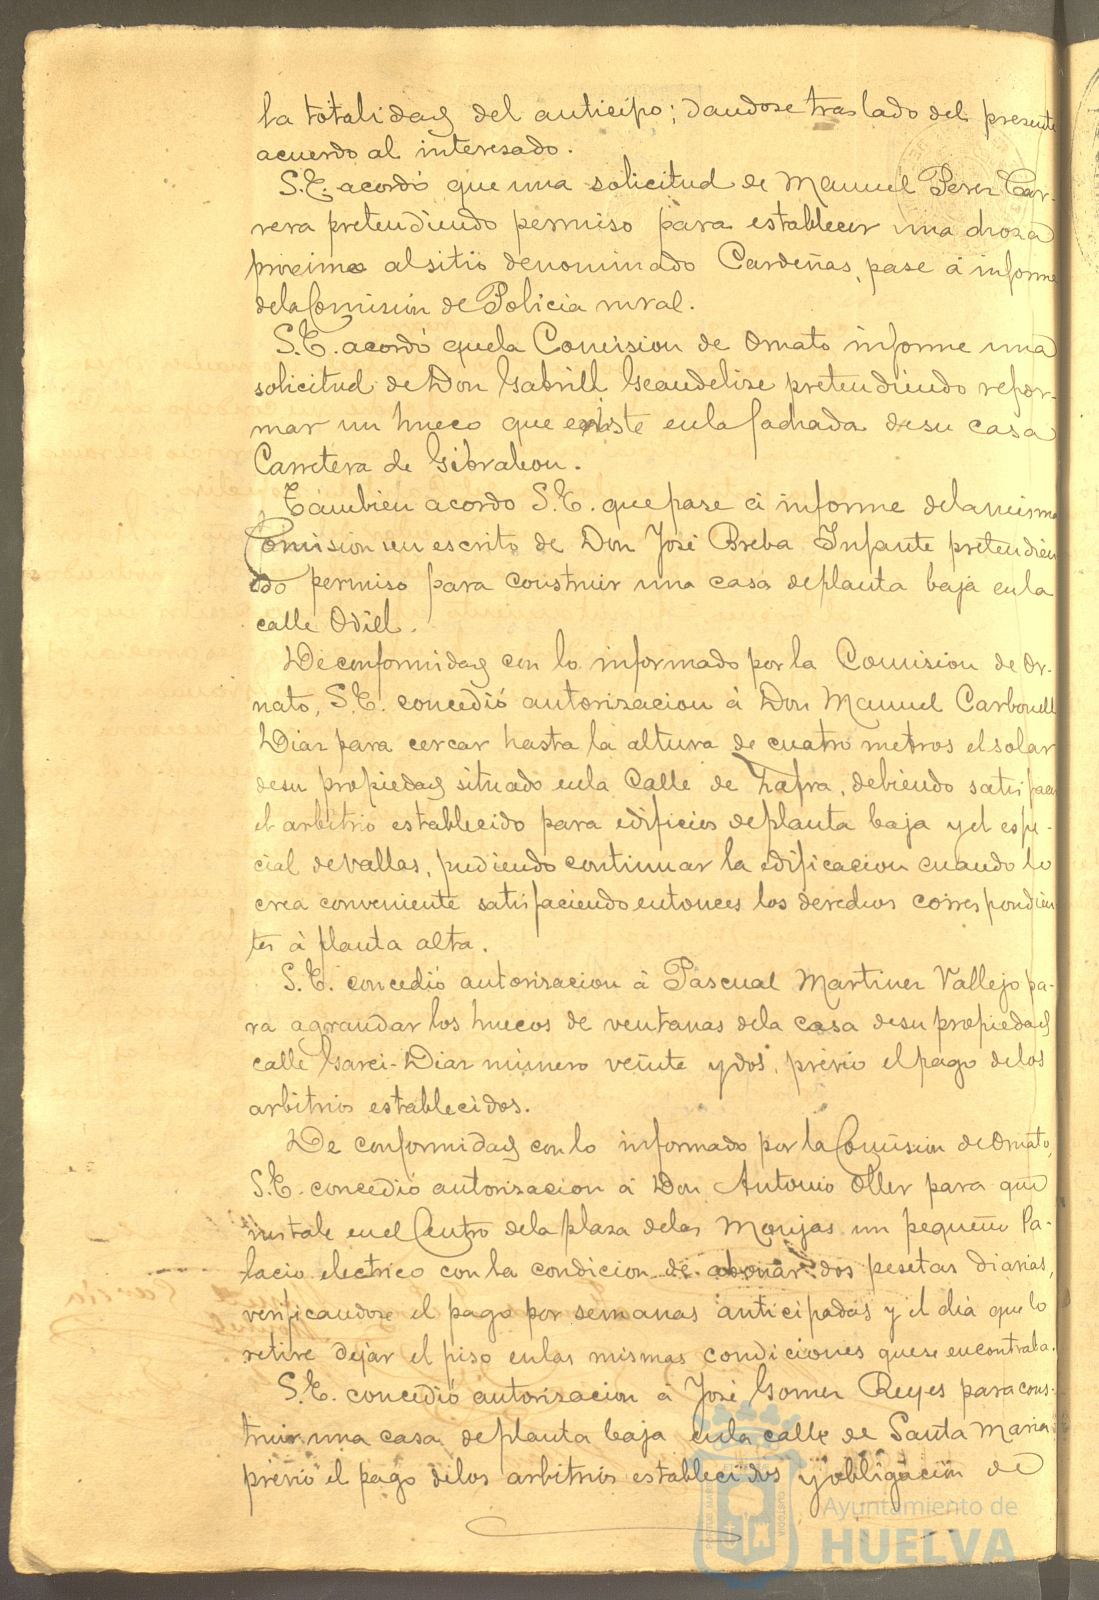 la totalidad del anticipo; dandose traslado del presente
acuerdo al interesado.
S.E. acordó que una solicitud de Manuel Perez Car-
rera pretendiendo permiso para establecer una choza
proximo al sitio denominado Cardeñas, pase á informe
de la Comision de Policia rural.
S.E. acordó que la Comision de Ornato informe una
solicitud de Don Gabrill pretendiendo refor-
mar un hueco que existe en la fachada de su casa
Carretera de Gibraleon.
Tambien acordo S.E. que pase á informe de la misma
Comision un escrito de Don José Breba Infante pretendien
do permiso para construir una casa de planta baja en la
calle Odiel.
De conformidad con lo informado por la Comision de Or-
nato, S.E. concedió autorizacion á Don Manuel Carbonell
Diaz para cercar hasta la altura de cuatro metros el solar
de su propiedad situado en la Calle de Zafra, debiendo satisfacer
el arbitrio establecido para edificios de planta baja y el espe-
cial de vallas, pudiendo continuar la edificacion cuando lo
crea conveniente satisfaciendo entonces los derechos correspondien
tes á planta alta.
S.E. concedió autorizacion á Pascual Martinez Vallejo pa-
ra agrandar los huecos de ventanas de la casa de su propiedad
calle Garci-Diaz número veinte y dos, prévio el pago de los
arbitrios establecidos.
De conformidad con lo informado por la Comision de Ornato,
S.E. concedió autorizacion á Don Antonio Oller para que
instale en el Centro de la plaza de las Monjas un pequeño Pa-
lacio electrico con la condicion de abonar dos pesetas diarias,
verificandose el pago por semanas anticipadas y el dia que lo
retire dejar el piso en las mismas condiciones que se encontraba.
S.E. concedió autorizacion á José Gomez Reyes para cons-
truir una casa de planta baja en la calle de Santa Maria
prévio el pago de los arbitrios establecidos y obligacion de
Ayuntamiento de
HUELVA